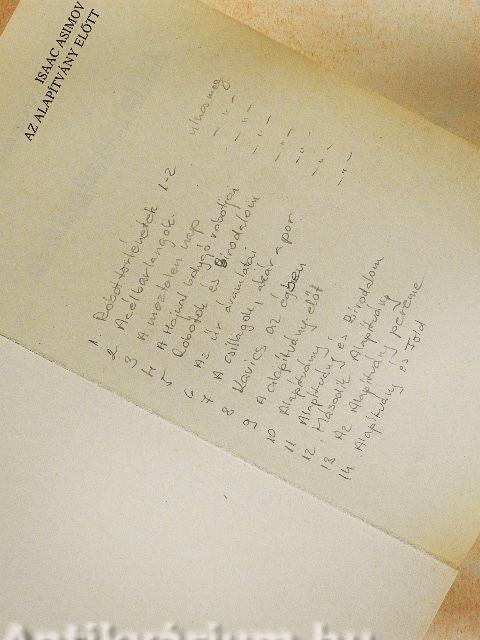 ISAAC ASIMOV
AZ ALAPÍTVÁNY ELŐTT
1. Robottörténetek 1-2
2 Acélbarlangok.
3 A meztelen nap
4 A Hajnal bolygó robotjai
5 Robotok és Birodalom
6 Az űr áramlatai
7 A csillagok, akár a por
8 Kavics az égben
9 A alapítvány előtt
10 Alapítvány
11 Alapítvány és Birodalom
12. Második Alapítvány
13 Az Alapítvány pereme
14 Alapítvány és Föld
Antikvárium.hu